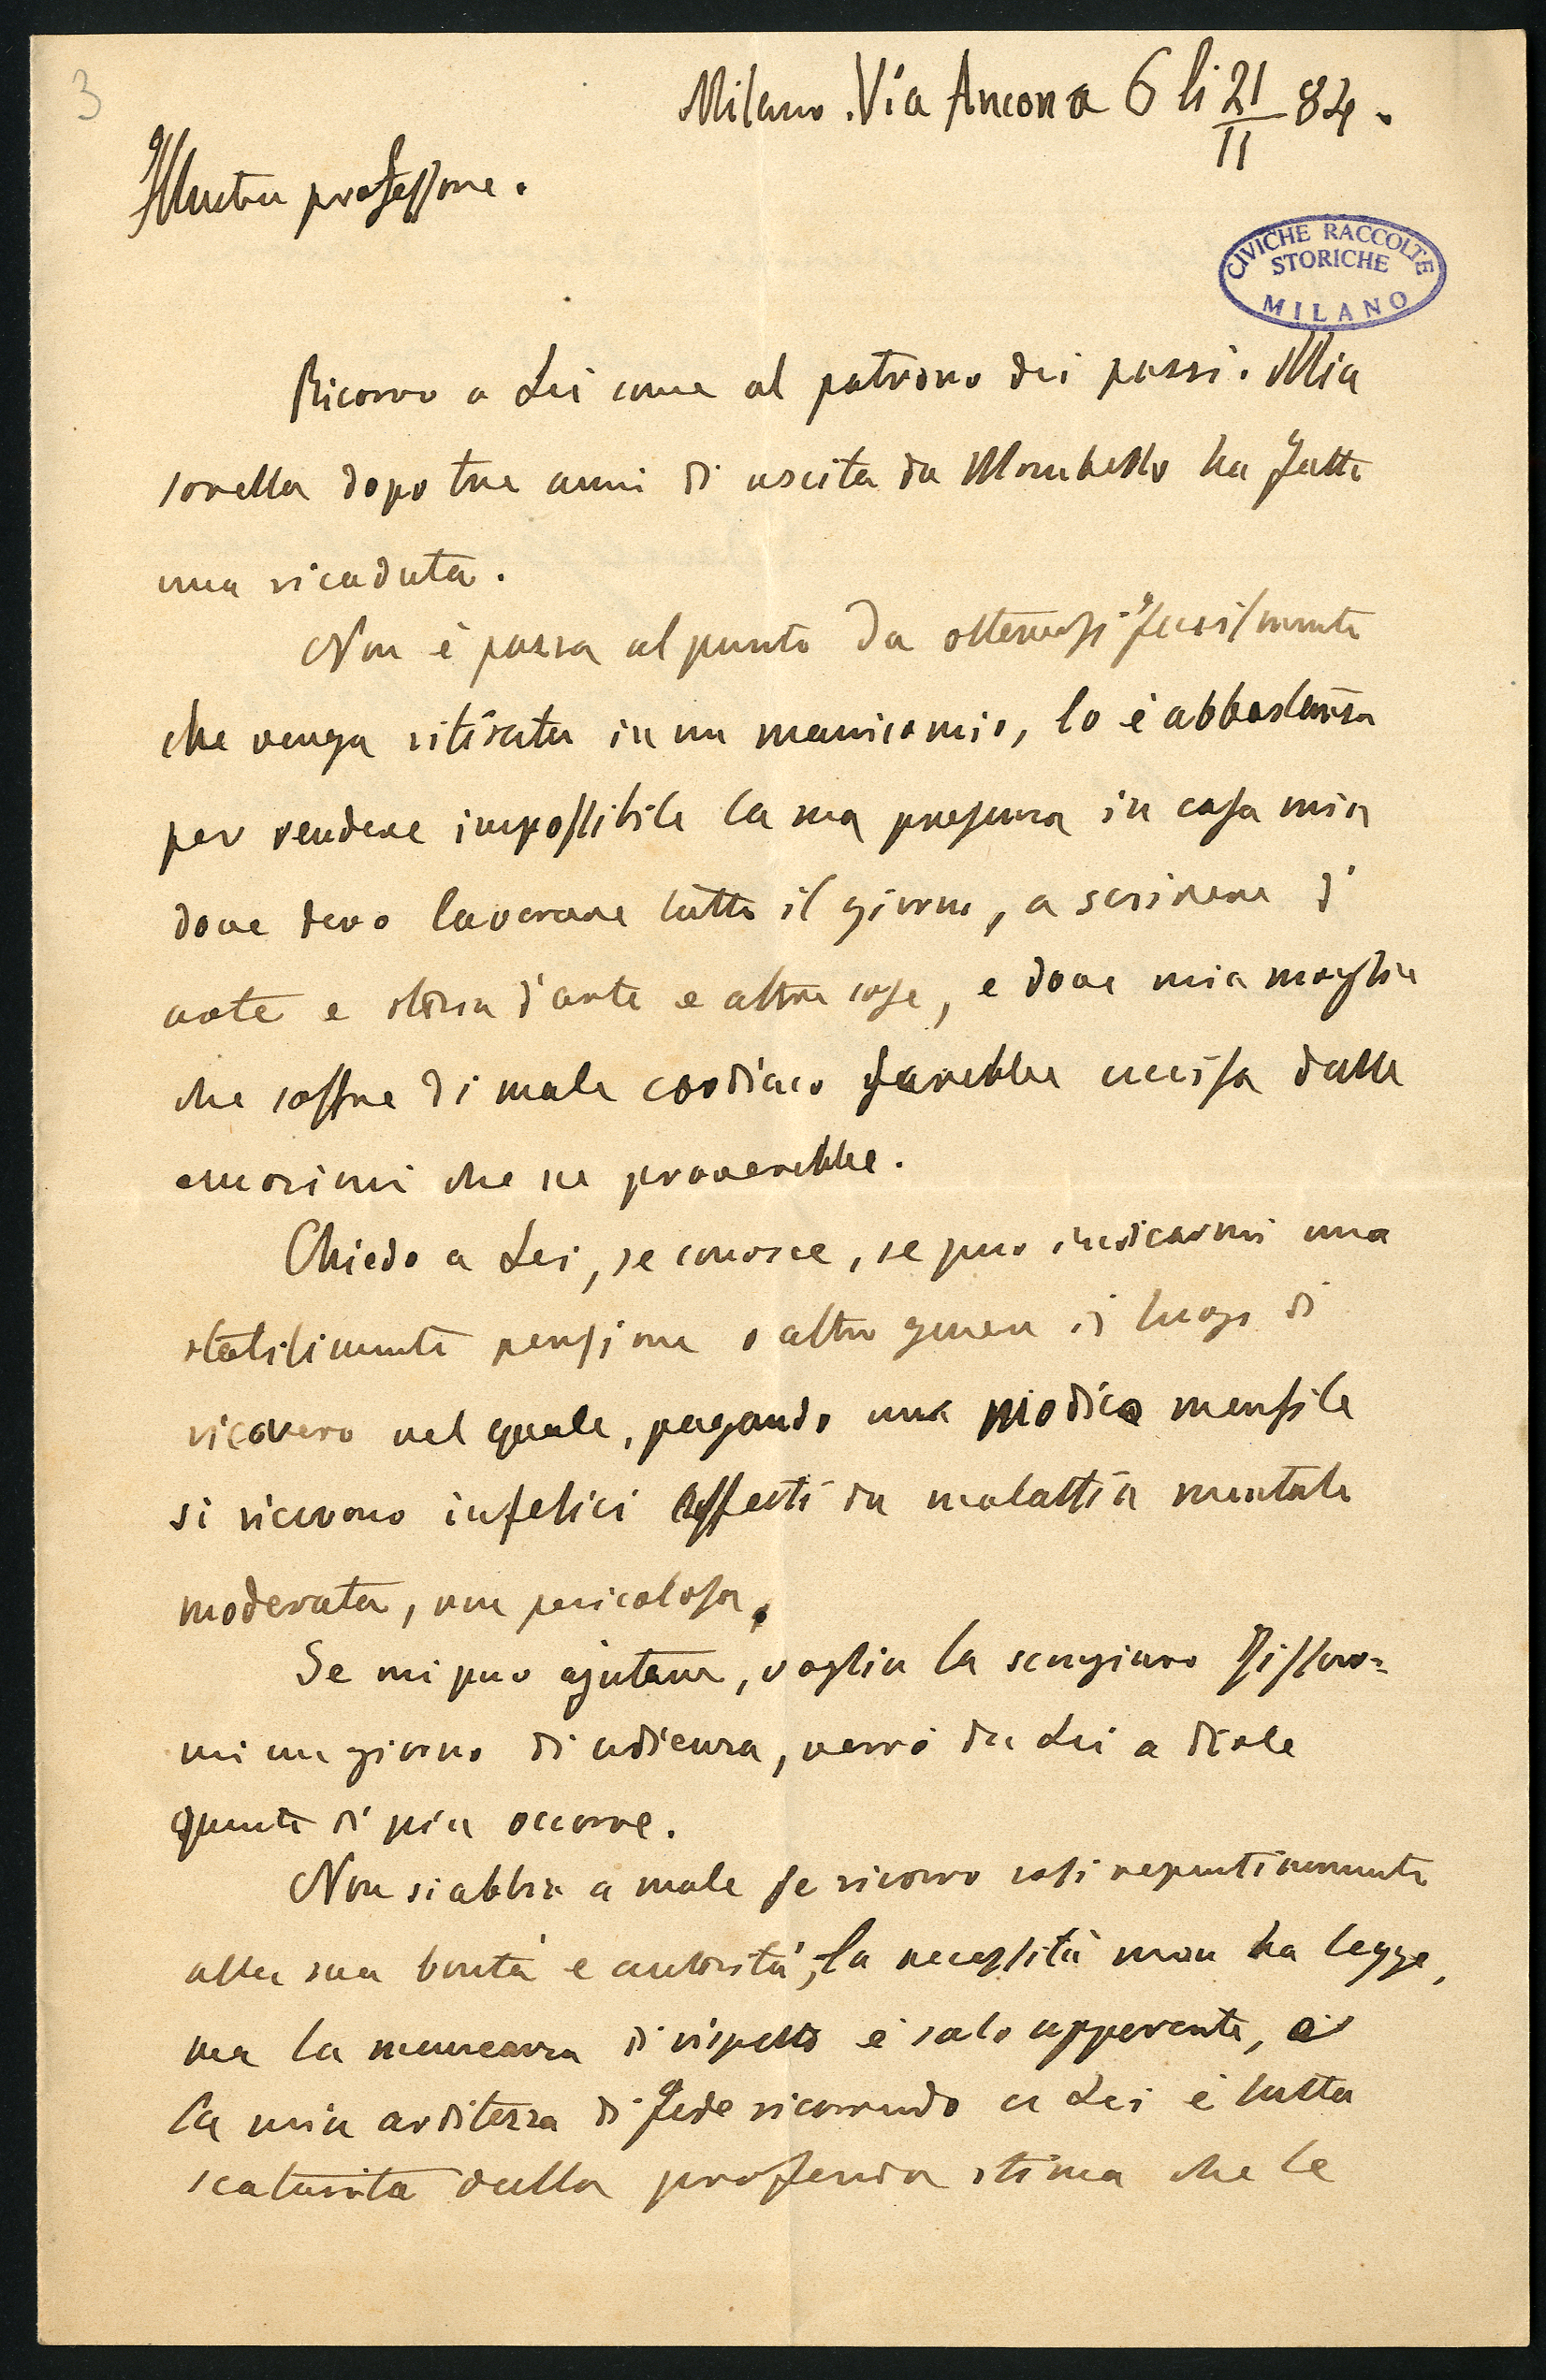 3
Milano. Via Ancona 6 li 21/II 84.
Illustre professore.
CIVICHE RACCOLTE
STORICHE
MILANO
Ricorro a Lei come al patrono dei pazzi. Mia
sorella dopo tre anni di uscita da Mombello ha fatto
una ricaduta.
Non è pazza al punto da ottenersi facilmente
che venga ritirata in un manicomio, lo è abbastanza
per rendere impossibile la sua presenza in casa mia
dove devo lavorare tutto il giorno, a scrivere d'
arte e storia d'arte e altre cose, e dove mia moglie
che soffre di male cardiaco sarebbe uccisa dalle
emozioni che ne proverebbe.
Chiedo a Lei, se conosce, se può indicarmi una
stabilimento pensione o altro genere di luogo di
ricovero nel quale, pagando una modica mensile
si ricevono infelici affetti da malattia mentale
moderata, non pericolosa.
Se mi può ajutare, voglia la scongiuro fissar=
mi un giorno di udienza, verrò da Lei a dirle
quanto di più occorre.
Non si abbia a male se ricorro così repentinamente
alla sua bontà e autorità, la necessità non ha legge,
ma la mancanza di rispetto è solo apparente, e
la mia arditezza di fede ricorrendo a Lei è tutta
scaturita dalla profonda stima che le